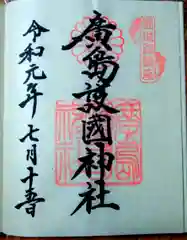 廣島護國神社
令和元年七月十五日